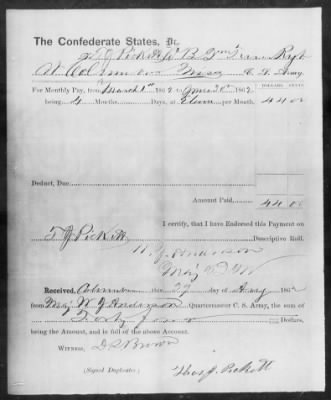 The Confederate States, Dr.
T J Pickett
At Columbus Miss C. S. Army.
For Monthly Pay, from March 1st 1862 to June 30th 1862,
DOLLARS CENTS
being 4 Months, Days, at Eleven per Month, 44 00
Deduct, Due
Amount Paid, 44 00
I certify, that I have Endorsed this Payment on
T J Pickett Descriptive Roll.
W. J. Anderson
Maj
Received, Columbus this 29 day of Aug 1862
from Maj W J Anderson Quartermaster C. S. Army, the sum of
Forty four Dollars,
being the Amount, and in full of the above Account.
Witness, Brown
Thos J. Pickett
(Signed Duplicates)